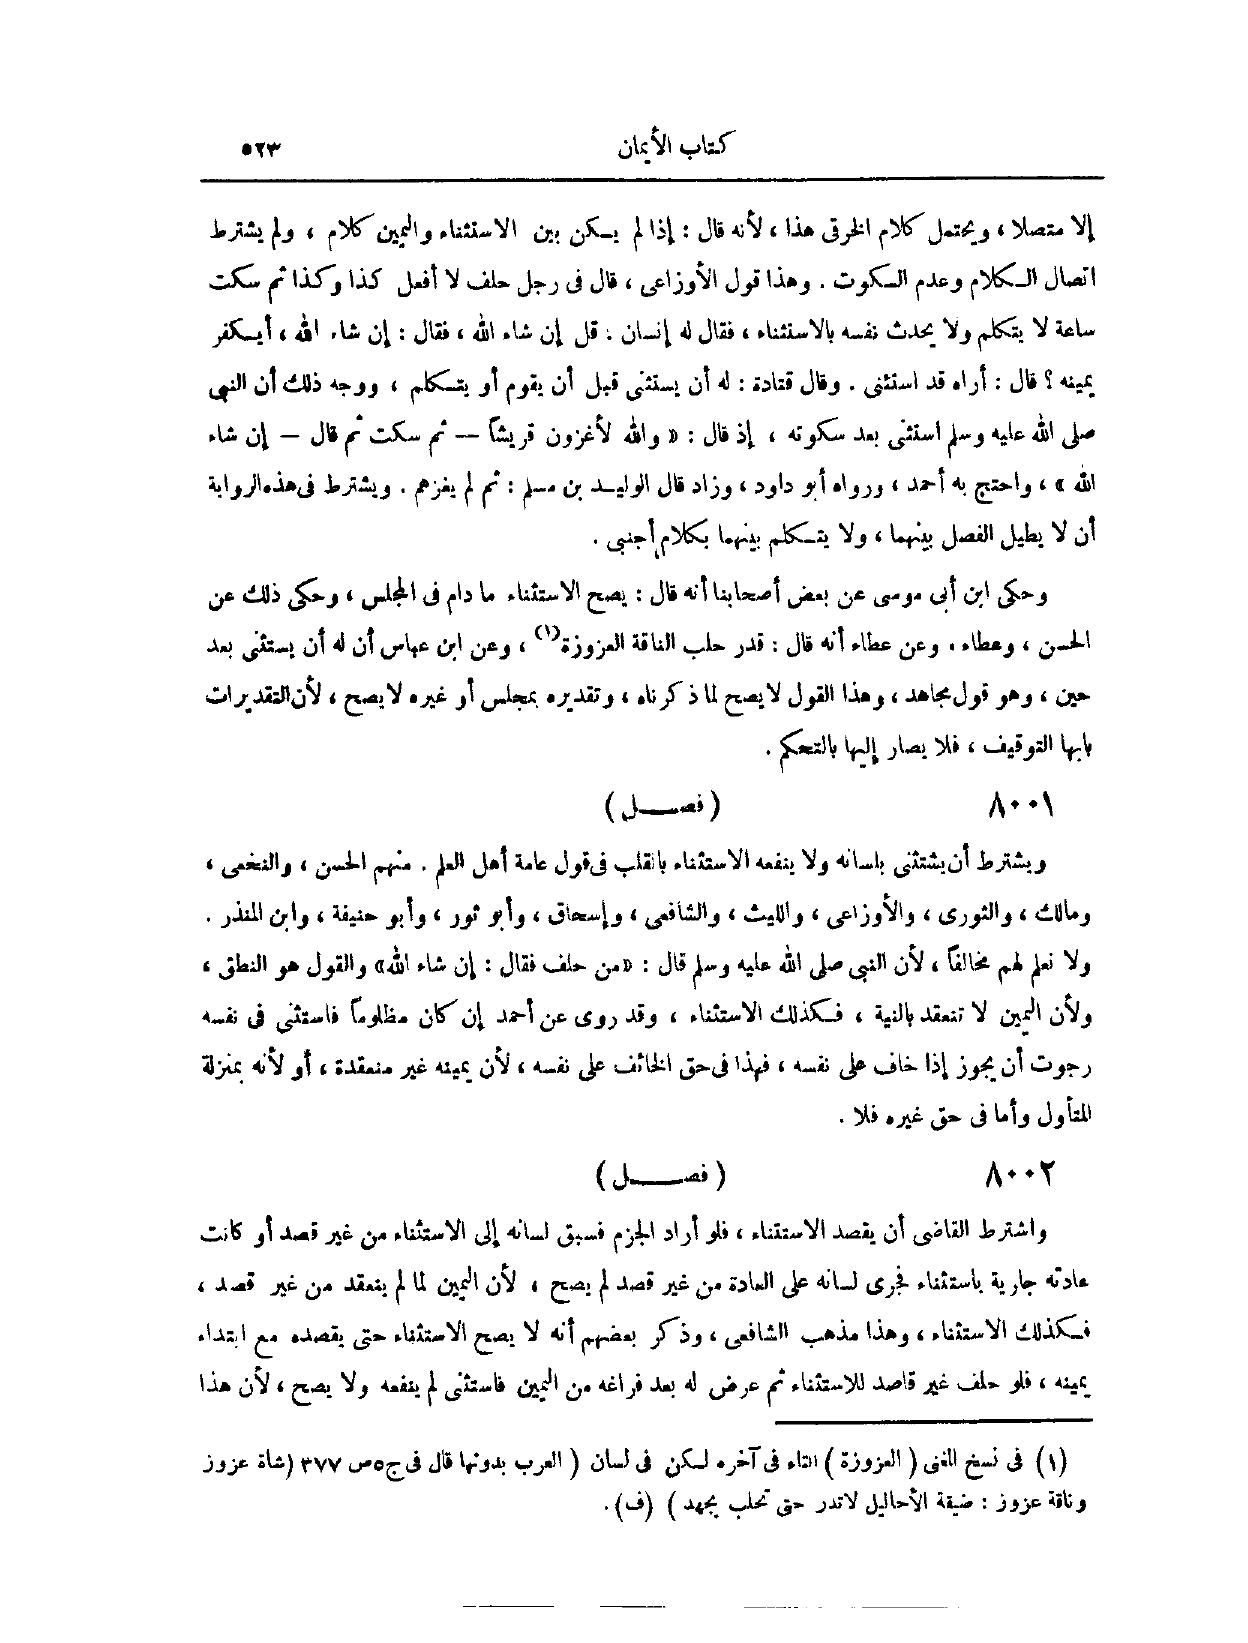 كتاب الأيمان ٥٢٣
إلا متصلا ، ويحتمل كلام الخرقى هذا ، لأنه قال : إذا لم يكن بين الاستثناء واليمين كلام ، ولم يشترط
اتصال الكلام وعدم السكوت . وهذا قول الأوزاعى ، قال فى رجل حلف لا أفعل كذا وكذا ثم سكت
ساعة لا يتكلم ولا يحدث نفسه بالاستثناء ، فقال له إنسان : قل إن شاء الله ، فقال : إن شاء الله ، أيكفر
يمينه ؟ قال : أراه قد استثنى . وقال قتادة : له أن يستثنى قبل أن يقوم أو يتكلم ، ووجه ذلك أن النبى
صلى الله عليه وسلم استثنى بعد سكوته ، إذ قال : « والله لأغزون قريشاً — ثم سكت ثم قال — إن شاء
الله » ، واحتج به أحمد ، ورواه أبو داود ، وزاد قال الوليد بن مسلم : ثم لم يغزهم . ويشترط فى هذه الرواية
أن لا يطيل الفصل بينهما ، ولا يتكلم بينهما بكلام أجنبى .
وحكى ابن أبى موسى عن بعض أصحابنا أنه قال : يصح الاستثناء ما دام فى المجلس ، وحكى ذلك عن
الحسن ، وعطاء . وعن عطاء أنه قال : قدر حلب الناقة العزوزة(١) ، وعن ابن عباس أن له أن يستثنى بعد
حين ، وهو قول مجاهد ، وهذا القول لا يصح لما ذكرناه ، وتقديره بمجلس أو غيره لا يصح ، لأن التقديرات
بابها التوقيف ، فلا يصار إليها بالتحكم .
٨٠٠١ ( فصـــل )
ويشترط أن يشتثنى بلسانه ولا ينفعه الاستثناء بالقلب فى قول عامة أهل العلم . منهم الحسن ، والنخعى ،
ومالك ، والثورى ، والأوزاعى ، والليث ، والشافعى ، وإسحاق ، وأبو ثور ، وأبو حنيفة ، وابن المنذر .
ولا نعلم لهم مخالفاً ، لأن النبى صلى الله عليه وسلم قال : «من حلف فقال : إن شاء الله» والقول هو النطق ،
ولأن اليمين لا تنعقد بالنية ، فكذلك الاستثناء ، وقد روى عن أحمد إن كان مظلوماً فاستثنى فى نفسه
رجوت أن يجوز إذا خاف على نفسه ، فهذا فى حق الخائف على نفسه ، لأن يمينه غير منعقدة ، أو لأنه بمنزلة
المتأول وأما فى حق غيره فلا .
٨٠٠٢ ( فصـــل )
واشترط القاضى أن يقصد الاستثناء ، فلو أراد الجزم فسبق لسانه إلى الاستثناء من غير قصد أو كانت
عادته جارية باستثناء فجرى لسانه على العادة من غير قصد لم يصح ، لأن اليمين لما لم ينعقد من غير قصد ،
فكذلك الاستثناء ، وهذا مذهب الشافعى ، وذكر بعضهم أنه لا يصح الاستثناء حتى يقصده مع ابتداء
يمينه ، فلو حلف غير قاصد للاستثناء ثم عرض له بعد فراغه من اليمين فاستثنى لم ينفعه ولا يصح ، لأن هذا
(١) فى نسخ المغنى ( العزوزة ) التاء فى آخره لكن فى لسان ( العرب بدونها قال فى ج٥ص ٣٧٧ (شاة عزوز
وناقة عزوز : ضيقة الأحاليل لا تدر حتى تحلب بجهد ) (ف).